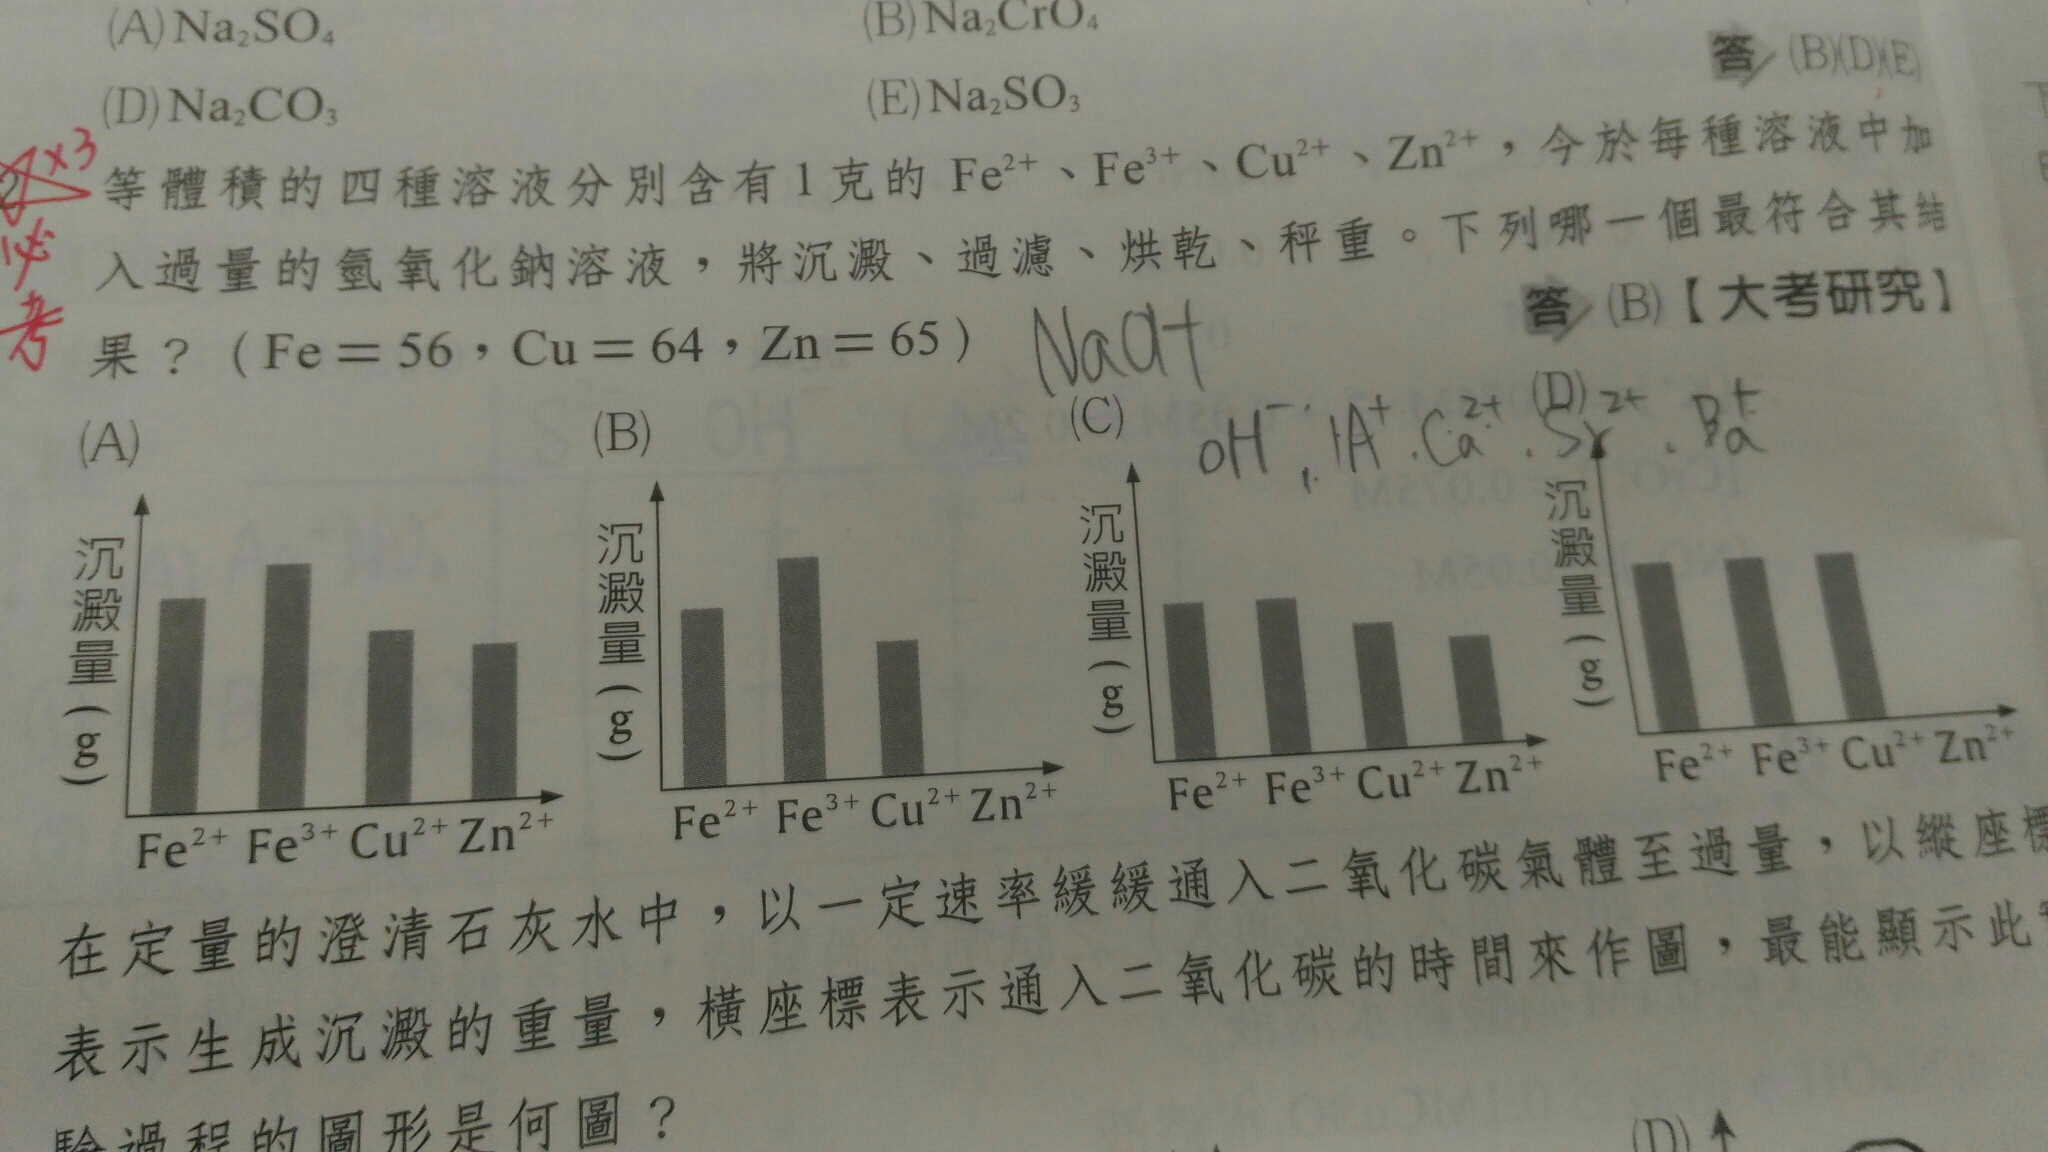 (A) Na₂SO₄ (B) Na₂CrO₄
答 (B)(D)(E)
(D) Na₂CO₃ (E) Na₂SO₃
×3
必
考
等體積的四種溶液分別含有1克的 Fe²⁺、Fe³⁺、Cu²⁺、Zn²⁺，今於每種溶液中加
入過量的氫氧化鈉溶液，將沉澱、過濾、烘乾、秤重。下列哪一個最符合其結
果？(Fe＝56，Cu＝64，Zn＝65) NaOH 答 (B)【大考研究】
(A) (B) (C) (D)
OH⁻: IA⁺. Ca²⁺. Sr²⁺. Ba⁺
沉澱量(g)
Fe²⁺ Fe³⁺ Cu²⁺ Zn²⁺
沉澱量(g)
Fe²⁺ Fe³⁺ Cu²⁺ Zn²⁺
沉澱量(g)
Fe²⁺ Fe³⁺ Cu²⁺ Zn²⁺
沉澱量(g)
Fe²⁺ Fe³⁺ Cu²⁺ Zn²⁺
在定量的澄清石灰水中，以一定速率緩緩通入二氧化碳氣體至過量，以縱座標
表示生成沉澱的重量，橫座標表示通入二氧化碳的時間來作圖，最能顯示此實
驗過程的圖形是何圖？
(D)